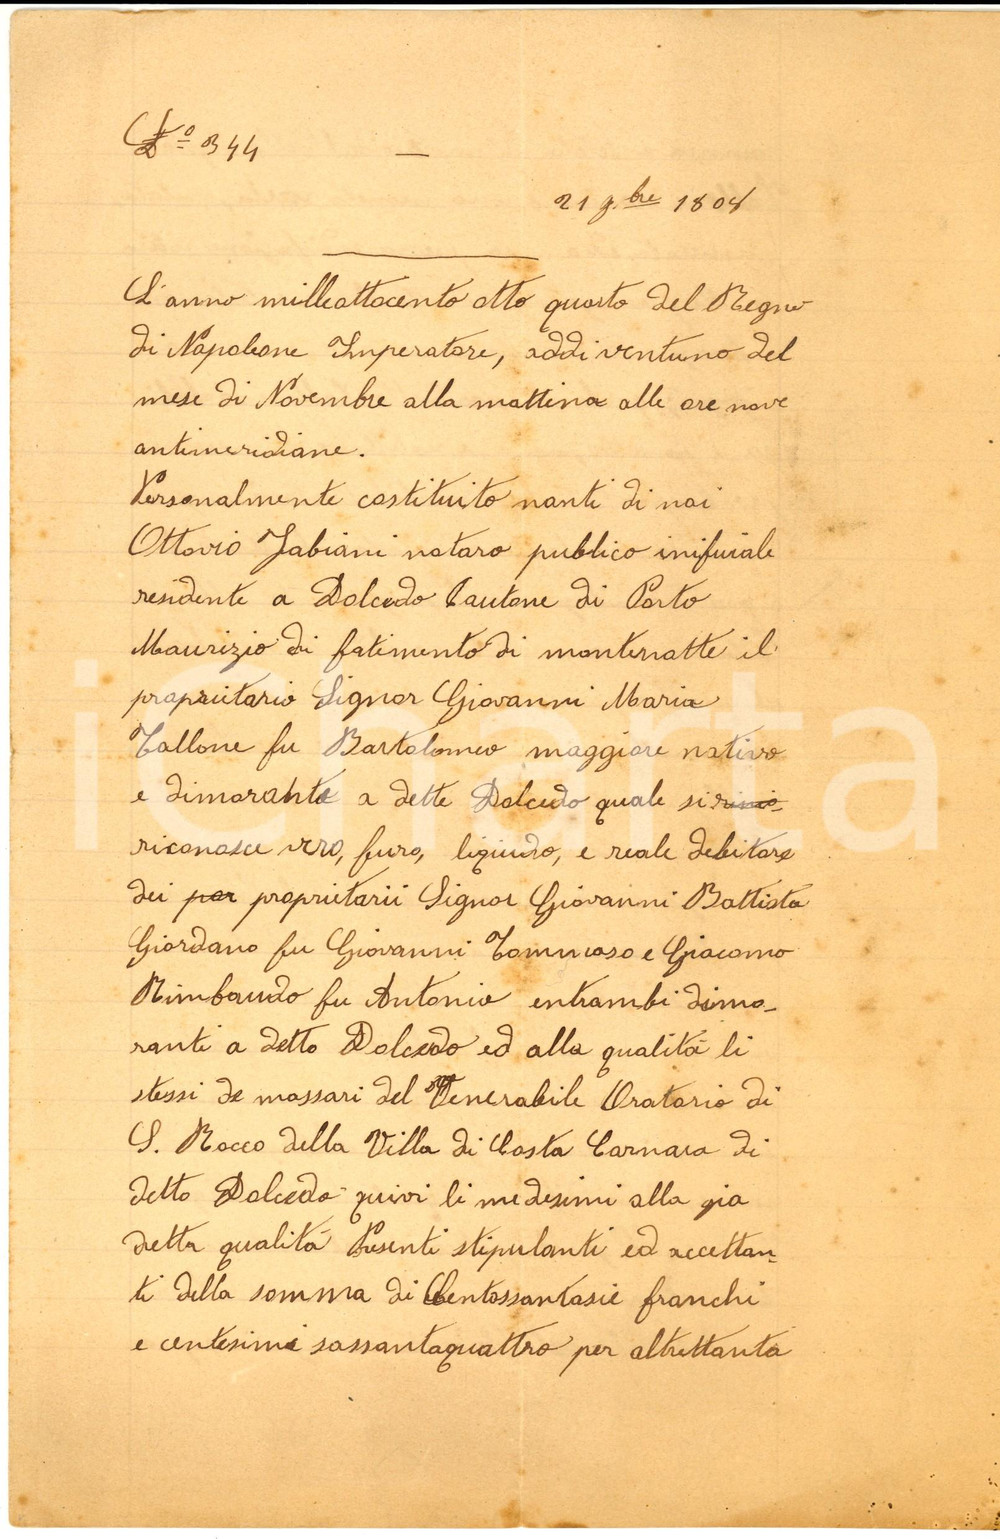 N.º 344
21 9.bre 1808
L'anno milleottocento otto quarto del Regno
di Napoleone Imperatore, addi ventuno del
mese di Novembre alla mattina alle ore nove
antimeridiane.
Personalmente costituito nanti di noi
Ottavio Fabiani notaro pubblico
residente a Dolcedo Cantone di Porto
Maurizio di fatimento di montenotte il
proprietario Signor Giovanni Maria
Tallone fu Bartolomeo maggiore nativo
e dimorante a dette Dolcedo quale si
riconosce vero, puro, liquido, e reale debitore
dei per proprietarii Signor Giovanni Battista
Giordano fu Giovanni Tommaso e Giacomo
Rimbaudo fu Antonio entrambi dimo-
ranti a detto Dolcedo ed alla qualità li
stessi de massari del Venerabile Oratorio di
S. Rocco della Villa di Costa Carnara di
detto Dolcedo quivi li medesimi alla gia
detta qualità Presenti stipulanti ed accettan-
ti della somma di Centossantasie franchi
e centesimi sassantaquattro per altrettanta
icharta